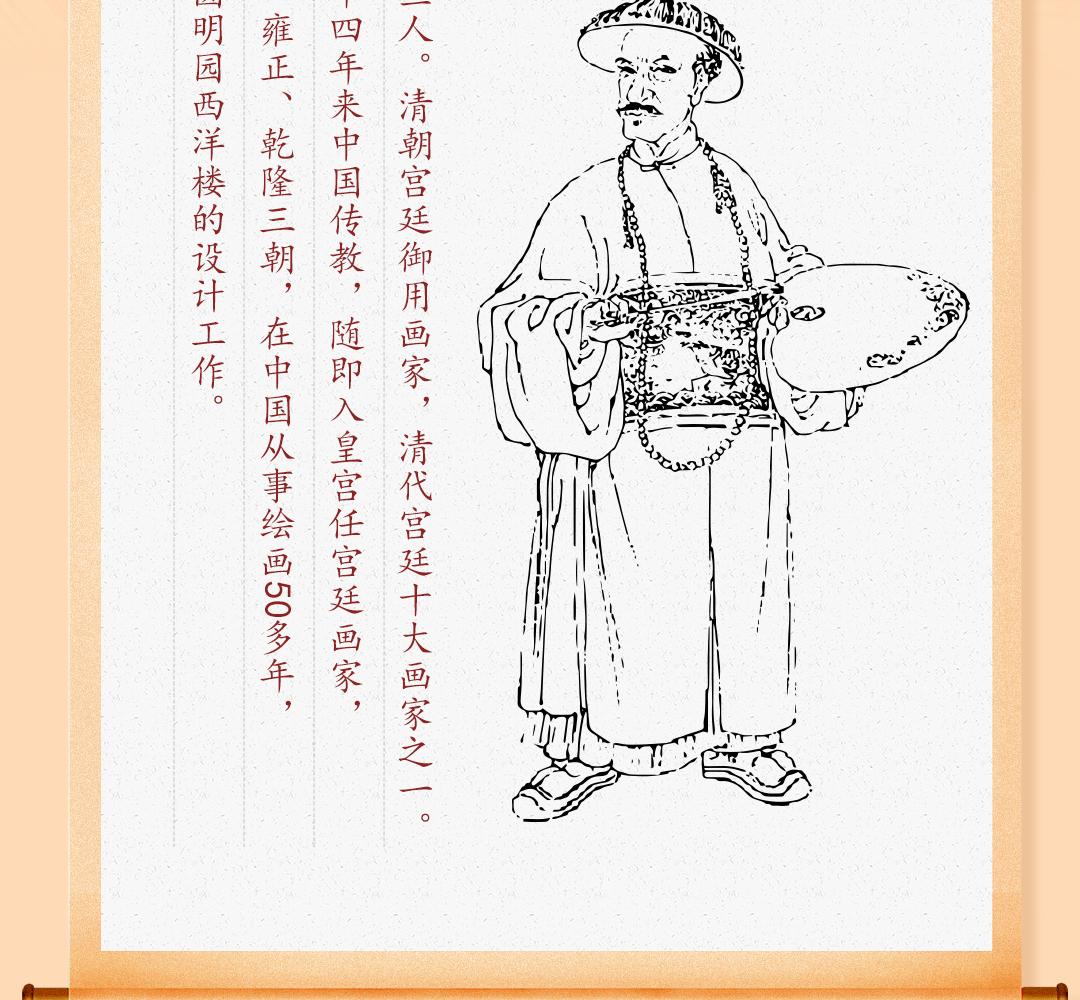 人。清朝宫廷御用画家，清代宫廷十大画家之一。
四年来中国传教，随即入皇宫任宫廷画家，
雍正、乾隆三朝，在中国从事绘画50多年，
明园西洋楼的设计工作。